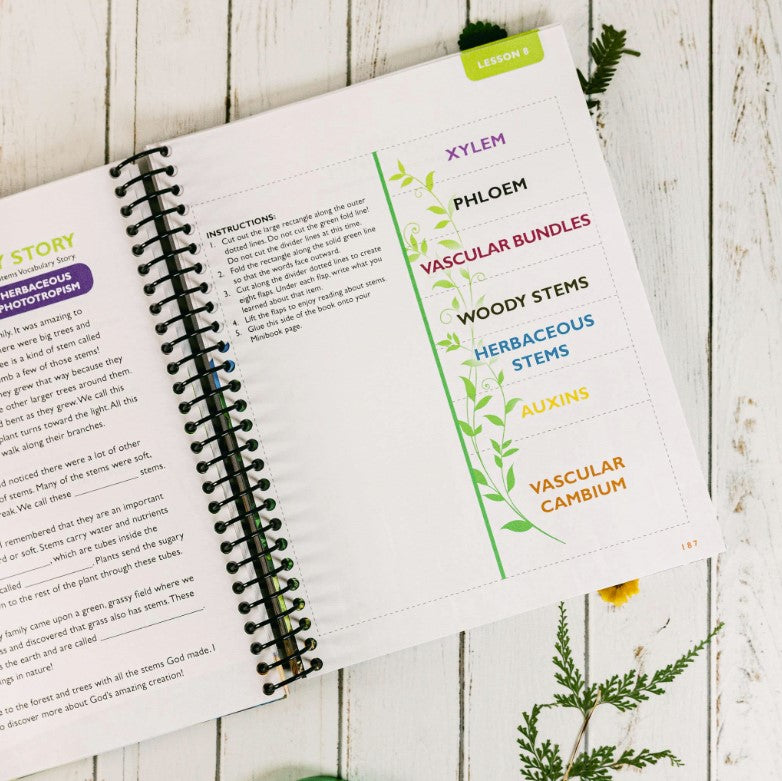 Y STORY
tems Vocabulary Story.
HERBACEOUS
PHOTOTROPISM
ily. It was amazing to
here were big trees and
ee is a kind of stem called
mb a few of those stems!
hey grew that way because they
e other larger trees around them.
d bent as they grew. We call this
plant turns toward the light. All this
walk along their branches.
d noticed there were a lot of other
of stems. Many of the stems were soft,
reak. We call these ____________ stems.
I remembered that they are an important
rd or soft. Stems carry water and nutrients
____________, which are tubes inside the
called ____________. Plants send the sugary
n to the rest of the plant through these tubes.
y family came upon a green, grassy field where we
ss and discovered that grass also has stems. These
s the earth and are called ____________.
ngs in nature!
e to the forest and trees with all the stems God made. I
o discover more about God's amazing creation!
LESSON 8
INSTRUCTIONS:
1. Cut out the large rectangle along the outer
dotted lines. Do not cut the green fold line!
Do not cut the divider lines at this time.
2. Fold the rectangle along the solid green line
so that the words face outward.
3. Cut along the divider dotted lines to create
eight flaps. Under each flap, write what you
learned about that item.
4. Lift the flaps to enjoy reading about stems.
5. Glue this side of the book onto your
Minibook page.
XYLEM
PHLOEM
VASCULAR BUNDLES
WOODY STEMS
HERBACEOUS
STEMS
AUXINS
VASCULAR
CAMBIUM
187